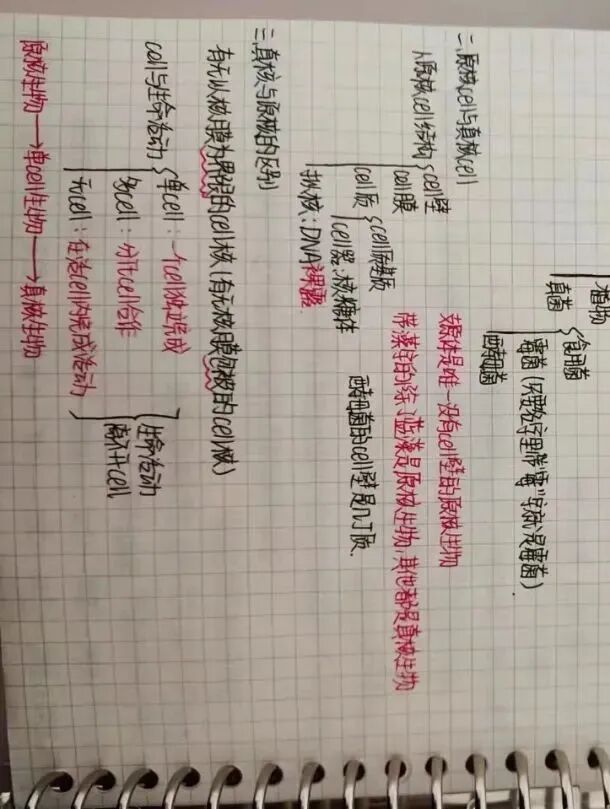 植物
真菌 { 食用菌
霉菌(只要名字里带"霉"字就没霉菌).
酵母菌
二、原核cell与真核cell
1、原核cell结构 { cell壁
cell膜
cell质 { cell质基质
cell器:核糖体
拟核:DNA裸露.
支原体是唯一没有cell壁的原核生物
带藻字的除了蓝藻是原核生物,其他都是真核生物
酵母菌的cell壁是几丁质.
三、真核与原核的区别
有无以核膜为界限的cell核(有无核膜包被的cell核)
cell与生命活动 { 单cell:一个cell独立完成
多cell:分化cell合作
无cell:在活cell内完成活动 } 生命活动
离不开cell
原核生物→单cell生物→真核生物